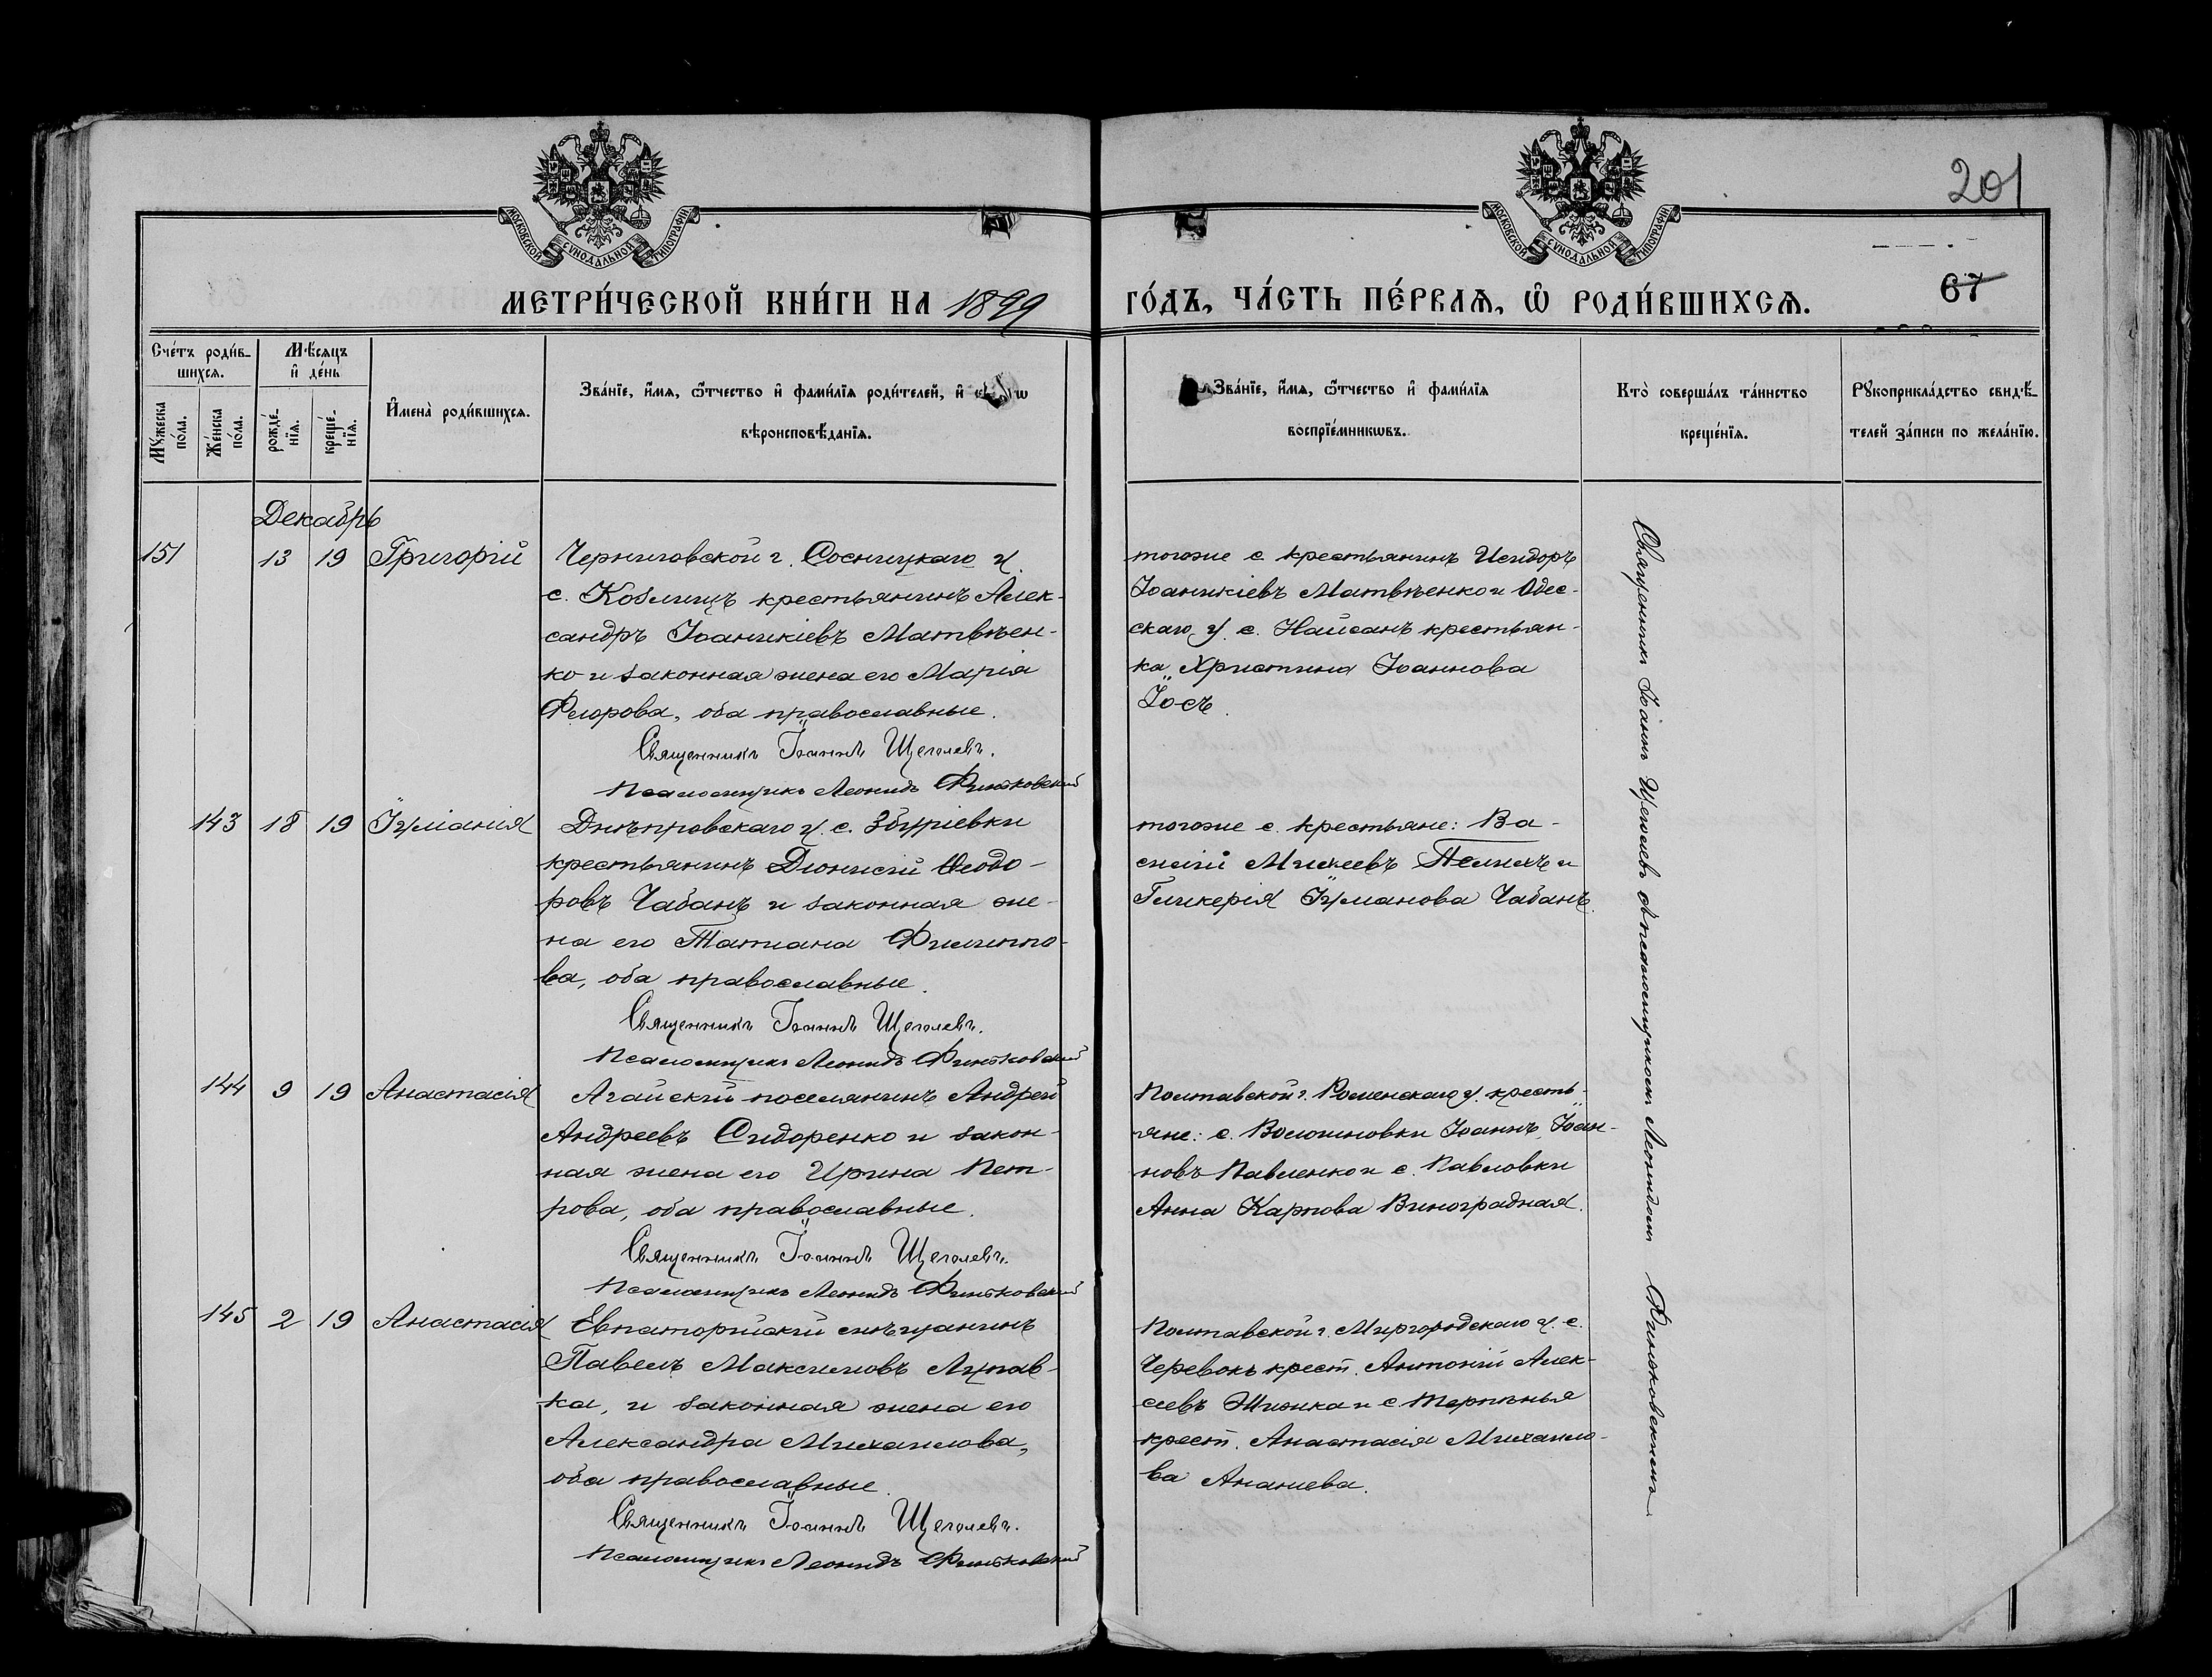 201
67
МОСКОВСКОЙ СѴНОДАЛЬНОЙ ТИПОГРАФІИ
МОСКОВСКОЙ СѴНОДАЛЬНОЙ ТИПОГРАФІИ
МЕТРИ́ЧЕСКОЙ КНИ́ГИ НА 1899 ГО́ДЪ, ЧА́СТЬ ПЕ́РВАѦ, Ѡ РОДИ́ВШИХСѦ.
Сче́тъ роди́в-
шихсѧ.
Мꙋ́жеска
по́ла.
Же́нска
по́ла.
Мѣ́сѧцъ
и҆ де́нь
рожде́-
нїѧ.
креще́-
нїѧ.
И҆мена̀ роди́вшихсѧ.
Зва́нїе, и҆́мѧ, ѻ҆́тчество и҆ фами́лїѧ роди́телей, и҆
вѣроисповѣ́данїѧ.
Зва́нїе, и҆́мѧ, ѻ҆́тчество и҆ фами́лїѧ
воспрїе́мникѡвъ.
Кто̀ соверша́лъ та́инство
креще́нїѧ.
Рꙋкоприкла́дство свидѣ́-
телей за́писи по жела́нїю.
Декабрь
151 13 19 Григорій
Черниговской г. Сосницкаго у.
с. Коблицъ крестьянинъ Алек-
сандръ Іоаникіевъ Матвѣен-
ко и законная жена его Марія
Флорова, оба православные.
Священникъ Іоаннъ Щеголевъ.
Псаломщикъ Леонидъ Финьковскій
тогоже с. крестьянинъ Исидоръ
Іоаникіевъ Матвѣенко и Одес-
скаго у. с. Найсанъ крестьян-
ка Христина Іоаннова
Іосъ.
143 18 19 Іуліанія
Днѣпровскаго у. с. Збуріевки
крестьянинъ Діонисій Ѳеодо-
ровъ Чабанъ и законная же-
на его Татіана Филиппо-
ва, оба православные.
Священникъ Іоаннъ Щеголевъ.
Псаломщикъ Леонидъ Финьковскій
тогоже с. крестьяне: Ва-
силій Михеевъ Пелихъ и
Гликерія Іуліанова Чабанъ.
144 9 19 Анастасія
Агайскій поселянинъ Андрей
Андреевъ Сидоренко и закон-
ная жена его Ирина Пет-
рова, оба православные.
Священникъ Іоаннъ Щеголевъ.
Псаломщикъ Леонидъ Финьковскій
Полтавской г. Роменскаго у. кресть-
яне: с. Волошновки Іоаннъ Іоан-
новъ Павленко и с. Павловки
Анна Карпова Виноградная.
145 2 19 Анастасія
Евпаторійскій мѣщанинъ
Павелъ Максимовъ Лупав-
ка, и законная жена его
Александра Михаилова,
оба православные.
Священникъ Іоаннъ Щеголевъ.
Псаломщикъ Леонидъ Финьковскій
Полтавской г. Миргородскаго у. с.
Черевокъ крест. Антоній Алек-
сѣевъ Жижка и с. Терпѣнья
крест. Анастасія Михаило-
ва Ананіева.
Священникъ Іоаннъ Щеголевъ съ псаломщикомъ Леонидомъ Финьковскимъ